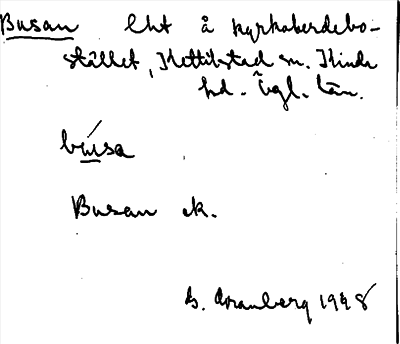 Busan lht å kyrkoherdebo-
stället, Kettilstad sn. Kinda
hd. Ögl. län.
búsa
Busan ek.
G. Franzén 1928